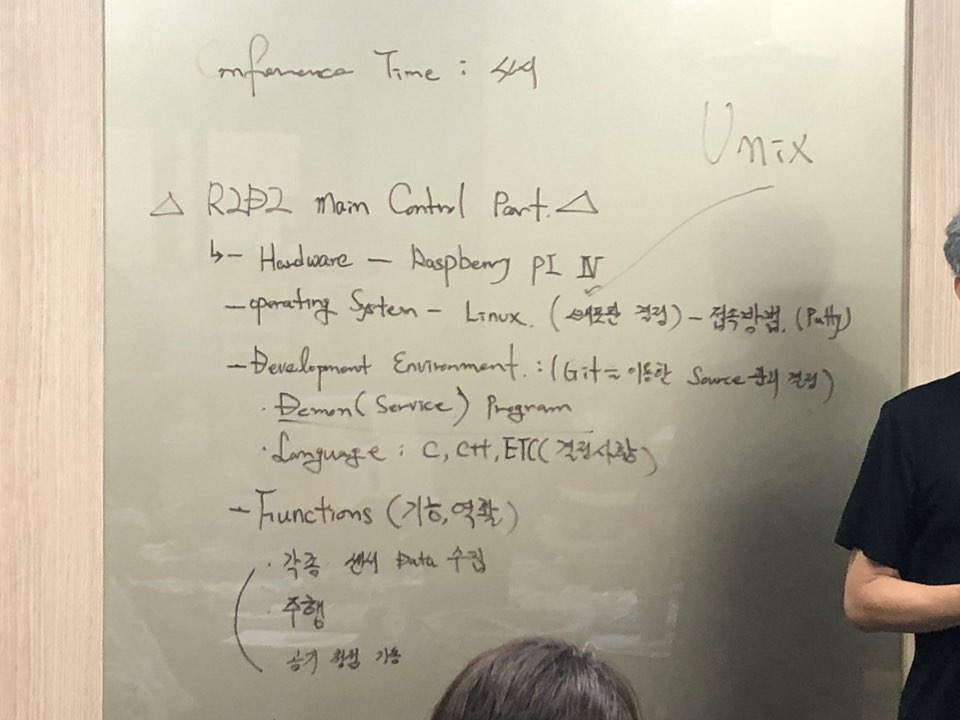 Conference Time : 4시
Unix
△ R2D2 Main Control Part. △
↳- Hardware - Raspberry PI Ⅳ
- Operating System - Linux. (배포판 결정) - 접속방법. (Putty)
- Development Environment. : (Git을 이용한 Source 관리 결정)
· Demon (Service) Program
· Language : C, C++, ETC (결정사항)
- Functions (기능, 역활)
· 각종 센서 Data 수집
· 주행
공기 청정 기능